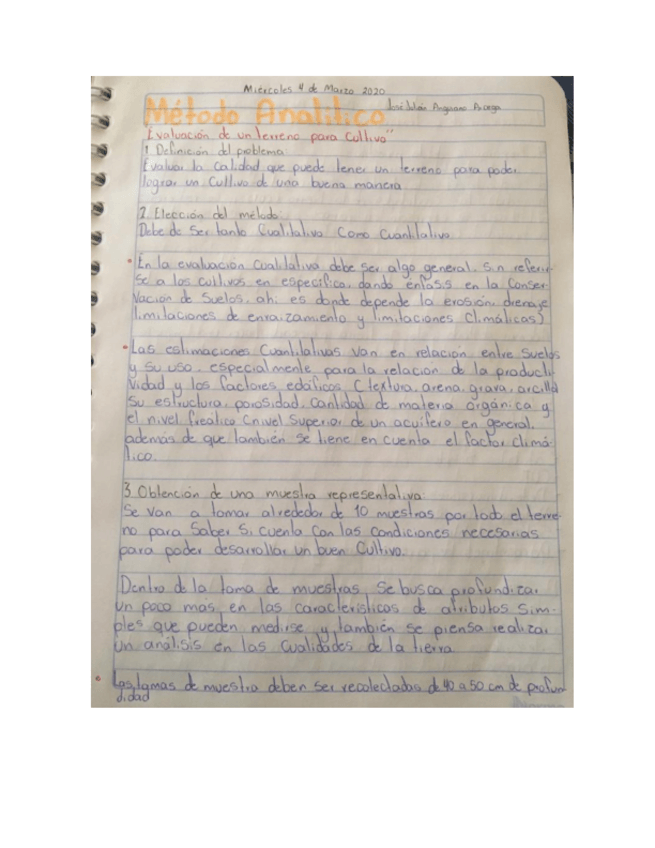 Miércoles 4 de Marzo 2020
José Julián Anguiano
Método Analítico
"Evaluación de un terreno para Cultivo"
1. Definición del problema
Evaluar la Calidad que puede tener un terreno para poder
lograr un Cultivo de una buena manera
2. Elección del método:
Debe de Ser tanto Cualitativo Como Cuantitativo
• En la evaluación Cualitativa debe ser algo general, Sin referir-
se a los cultivos en especifico, dando énfasis en la Conser-
Vación de Suelos, ahi es donde depende la erosión, drenaje
limitaciones de enraizamiento y limitaciones Climáticas)
• Las estimaciones Cuantitativas van en relación entre Suelos
y Su uso, especialmente para la relación de la producti-
Vidad y los factores edáficos (textura, arena, grava, arcilla
Su estructura, porosidad, Cantidad de materia orgánica y
el nivel freático (nivel Superior de un acuífero en general,
además de que también se tiene en cuenta el factor climá-
tico.
3. Obtención de una muestra representativa:
Se van a tomar alrededor de 10 muestras por todo el terre-
no para Saber Si Cuenta Con las Condiciones necesarias
para poder desarrollar un buen Cultivo.
Dentro de la toma de muestras Se busca profundizar
Un poco más en las características de atributos Sim-
ples que pueden medirse y también Se piensa realizar
Un análisis en las Cualidades de la tierra
• Las tomas de muestra deben ser recolectadas de 40 a 50 cm de profun-
didad
Norma